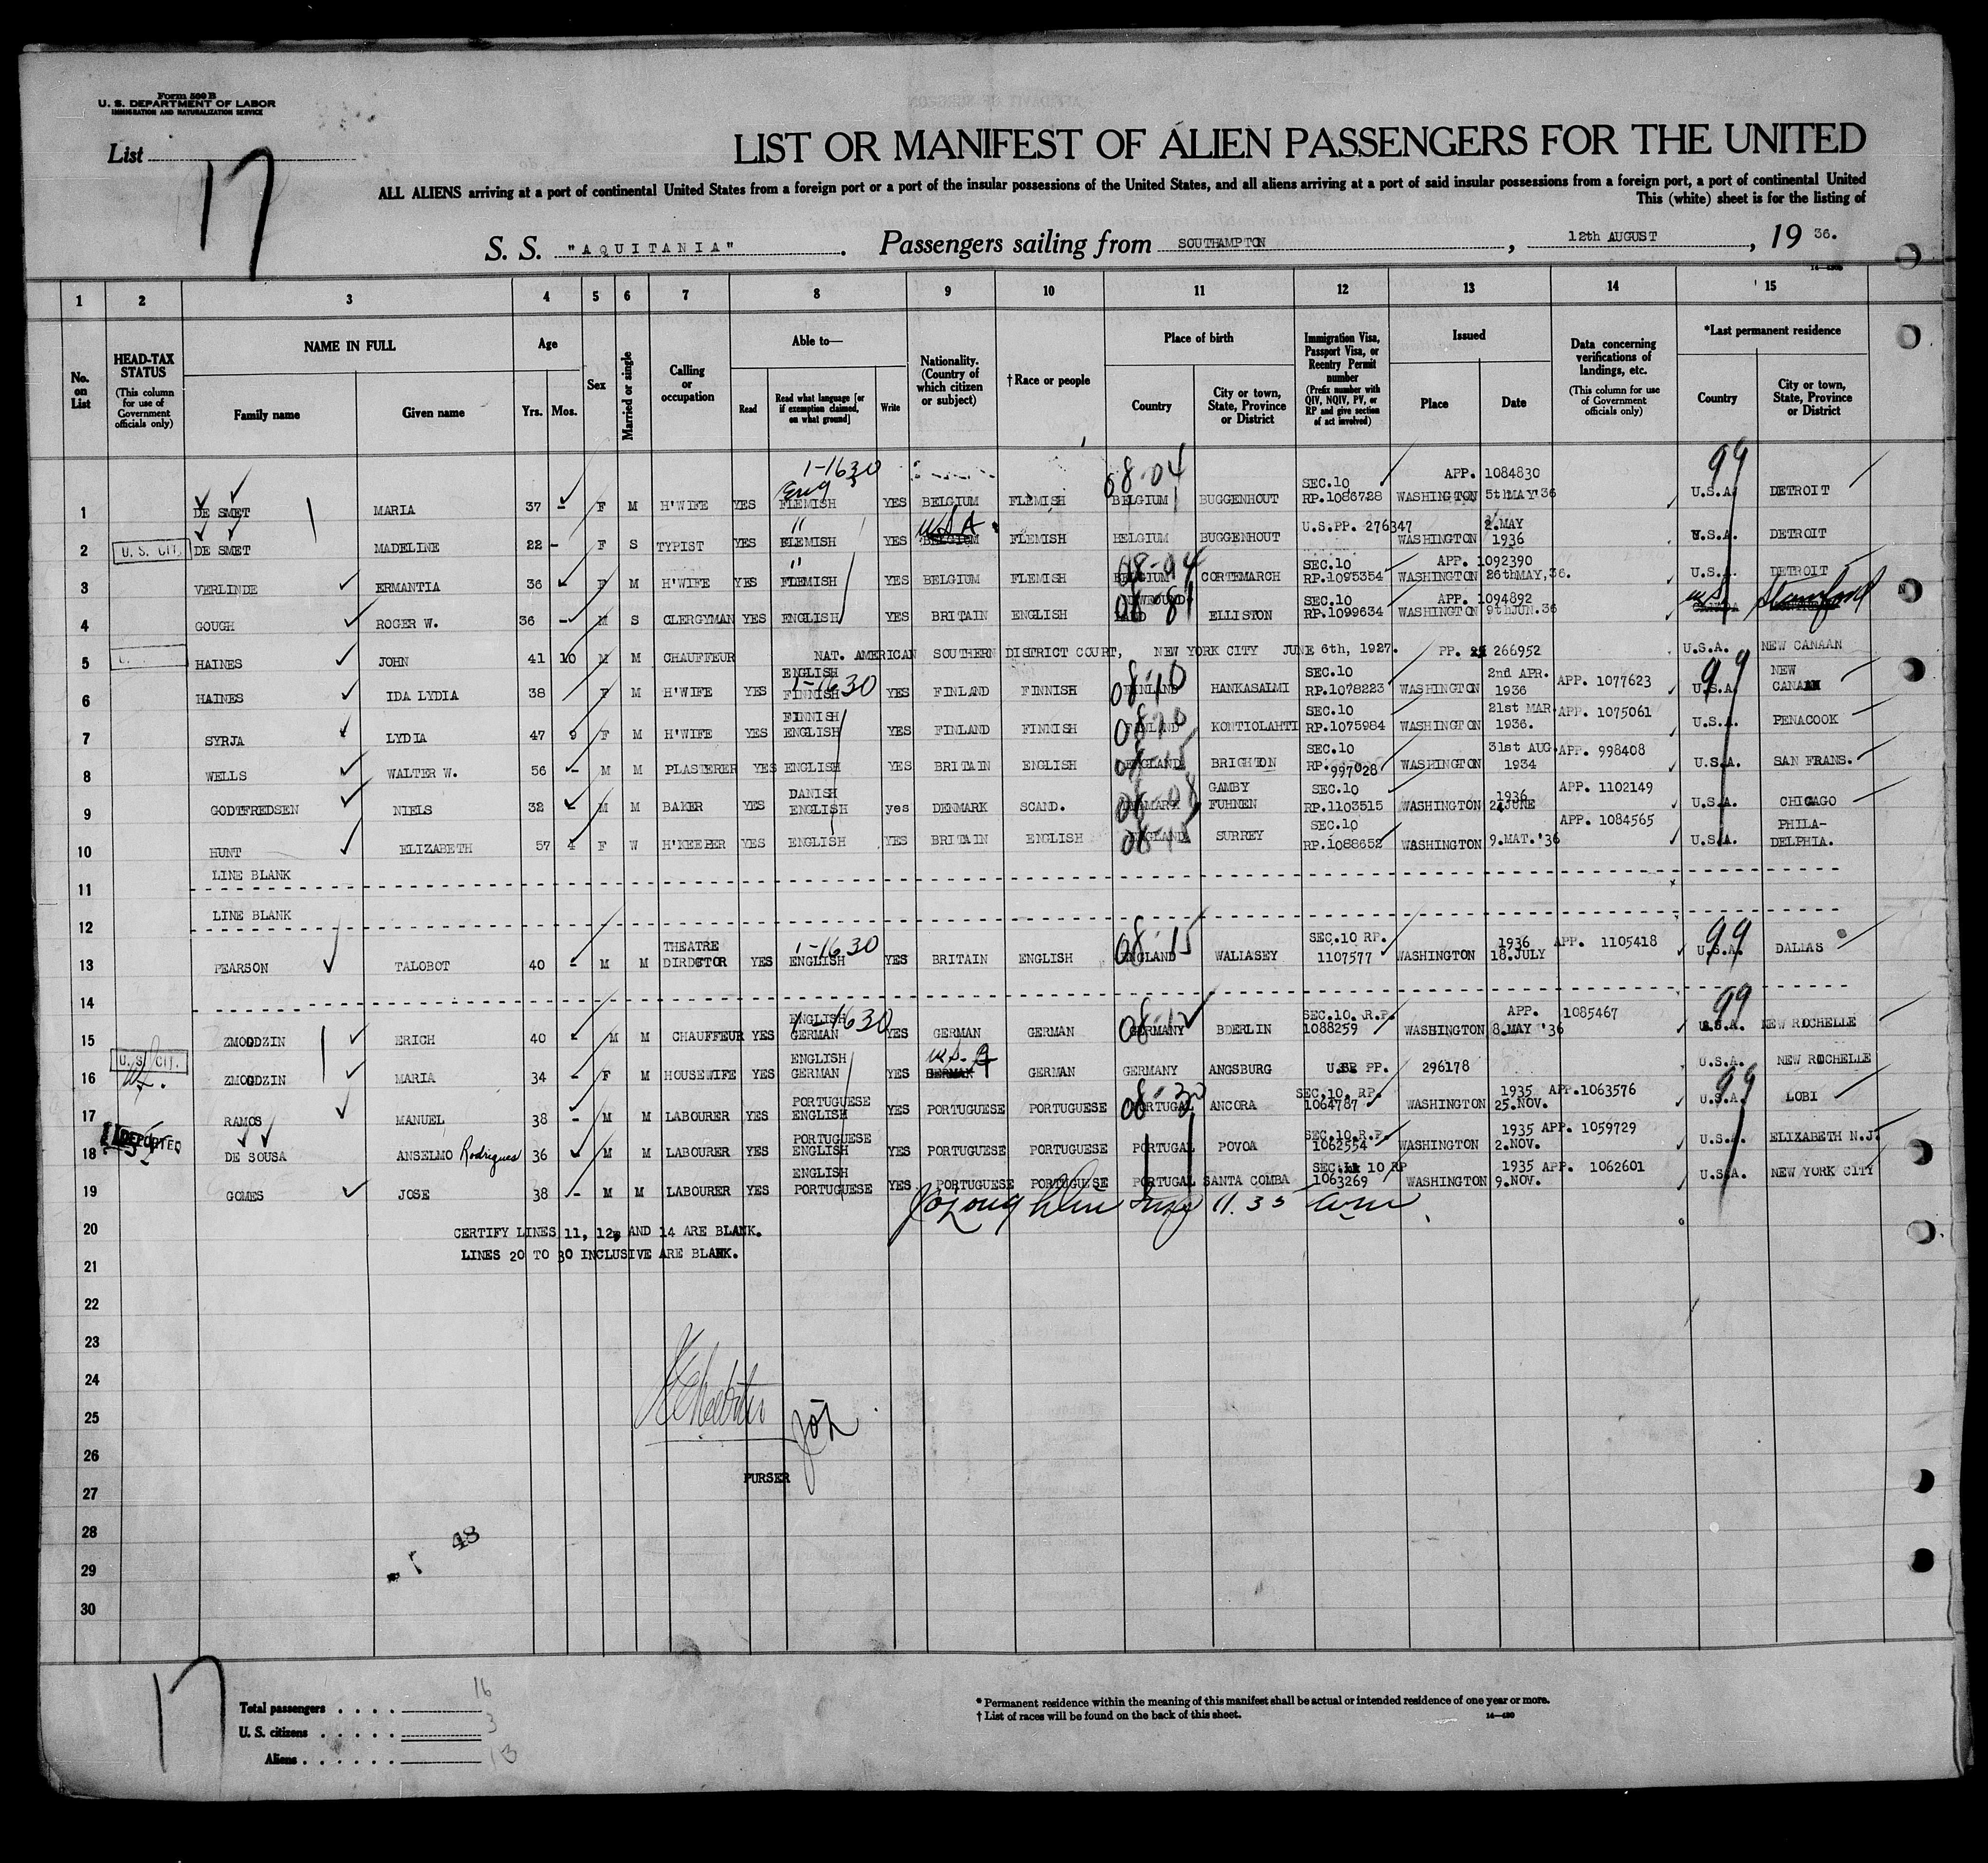 Form 500 B
U. S. DEPARTMENT OF LABOR
IMMIGRATION AND NATURALIZATION SERVICE
List 17
LIST OR MANIFEST OF ALIEN PASSENGERS FOR THE UNITED
ALL ALIENS arriving at a port of continental United States from a foreign port or a port of the insular possessions of the United States, and all aliens arriving at a port of said insular possessions from a foreign port, a port of continental United
This (white) sheet is for the listing of
S. S. "AQUITANIA". Passengers sailing from SOUTHAMPTON, 12th AUGUST, 19 36.
1 2 3 4 5 6 7 8 9 10 11 12 13 14 15
No. on List
HEAD-TAX STATUS (This column for use of Government officials only)
NAME IN FULL Family name Given name
Age Yrs. Mos.
Sex
Married or single
Calling or occupation
Able to— Read Read what language [or if exemption claimed, on what ground] Write
Nationality. (Country of which citizen or subject)
†Race or people
Place of birth Country City or town, State, Province or District
Immigration Visa, Passport Visa, or Reentry Permit number (Prefix number with QIV, NQIV, PV, or RP and give section of act involved)
Issued Place Date
Data concerning verifications of landings, etc. (This column for use of Government officials only)
*Last permanent residence Country City or town, State, Province or District
1-1630 08-04 SEC.10 APP. 1084830 99
1 DE SMET MARIA 37 - F M H'WIFE YES Eng FLEMISH YES BELGIUM FLEMISH BELGIUM BUGGENHOUT RP.1086728 WASHINGTON 5thMAY'36 U.S.A. DETROIT
2 U. S. CIT. DE SMET MADELINE 22 - F S TYPIST YES " FLEMISH YES USA BELGIUM FLEMISH BELGIUM BUGGENHOUT U.S.PP. 276347 WASHINGTON 2.MAY 1936 U.S.A. DETROIT
3 VERLINDE ERMANTIA 36 F M H'WIFE YES " FLEMISH YES BELGIUM FLEMISH 08-04 BELGIUM CORTEMARCH SEC.10 RP.1095354 WASHINGTON APP. 1092390 26thMAY,36. U.S.A. DETROIT
4 GOUGH ROGER W. 36 - M S CLERGYMAN YES ENGLISH YES BRITAIN ENGLISH 08-81 NEWFOUND-LAND ELLISTON SEC.10 RP.1099634 WASHINGTON APP. 1094892 9thJUN.36 US CANADA Stamford
5 HAINES JOHN 41 10 M M CHAUFFEUR NAT. AMERICAN SOUTHERN DISTRICT COURT, NEW YORK CITY JUNE 6th, 1927. PP. 266952 U.S.A. NEW CANAAN
6 HAINES IDA LYDIA 38 F M H'WIFE YES ENGLISH FINNISH 1-1630 YES FINLAND FINNISH 08-10 FINLAND HANKASALMI SEC.10 RP.1078223 WASHINGTON 2nd APR. 1936 APP. 1077623 99 U.S.A. NEW CANAAN
7 SYRJA LYDIA 47 9 F M H'WIFE YES FINNISH ENGLISH YES FINLAND FINNISH 0810 FINLAND KONTIOLAHTI SEC.10 RP.1075984 WASHINGTON 21st MAR. 1936. APP. 1075061 U.S.A. PENACOOK
8 WELLS WALTER W. 56 - M M PLASTERER YES ENGLISH YES BRITAIN ENGLISH 08-15 ENGLAND BRIGHTON SEC.10 RP.997028 WASHINGTON 31st AUG. 1934 APP. 998408 U.S.A. SAN FRANS.
9 GODTFREDSEN NIELS 32 - M M BAKER YES DANISH ENGLISH yes DENMARK SCAND. 08-08 DENMARK GAMBY FUHNEN SEC.10 RP.1103515 WASHINGTON 1936 24JUNE APP. 1102149 U.S.A. CHICAGO
10 HUNT ELIZABETH 57 4 F W H'KEEPER YES ENGLISH YES BRITAIN ENGLISH 08-15 ENGLAND SURREY SEC.10 RP.1088652 WASHINGTON 9.MAT.'36 APP. 1084565 U.S.A. PHILA-DELPHIA.
11 LINE BLANK
12 LINE BLANK
13 PEARSON TALOBOT 40 - M M THEATRE DIRECTOR YES 1-1630 ENGLISH YES BRITAIN ENGLISH 08-15 ENGLAND WALLASEY SEC.10 RP. 1107577 WASHINGTON 1936 18.JULY APP. 1105418 99 U.S.A. DALLAS
14
15 ZMOGDZIN ERICH 40 M M CHAUFFEUR YES ENGLISH GERMAN 1-1630 YES GERMAN GERMAN 08-12 GERMANY BDERLIN SEC.10. R.P. 1088259 WASHINGTON 8.MAY '36 APP. 1085467 99 U.S.A. NEW ROCHELLE
16 U. S. CIT. ZMOGDZIN MARIA 34 - F M HOUSEWIFE YES ENGLISH GERMAN YES GERMAN GERMANY ANGSBURG PP. 296178 U.S.A. NEW ROCHELLE
17 RAMOS MANUEL 38 - M M LABOURER YES PORTUGUESE ENGLISH YES PORTUGUESE PORTUGUESE 08-30 PORTUGAL ANCORA SEC.10. RP. 1064787 WASHINGTON 1935 25.NOV. APP.1063576 99 U.S.A. LOBI
18 DEPORTED DE SOUSA ANSELMO Rodrigues 36 M M LABOURER YES PORTUGUESE ENGLISH YES PORTUGUESE PORTUGUESE PORTUGAL POVOA SEC.10.R.P. 1062554 WASHINGTON 1935 2.NOV. APP. 1059729 U.S.A. ELIZABETH N.J.
19 GOMES JOSE 38 - M M LABOURER YES ENGLISH PORTUGUESE YES PORTUGUESE PORTUGUESE PORTUGAL SANTA COMBA SEC. 10 RP 1063269 WASHINGTON 1935 9.NOV. APP. 1062601 U.S.A. NEW YORK CITY
11.35
20 CERTIFY LINES 11, 12, AND 14 ARE BLANK.
LINES 20 TO 30 INCLUSIVE ARE BLANK.
21
22
23
24
25
26
PURSER
27
28
48
29
30
17
Total passengers . . . . 16
U. S. citizens . . . . . 3
Aliens . . . . . . 13
* Permanent residence within the meaning of this manifest shall be actual or intended residence of one year or more.
† List of races will be found on the back of this sheet.
14—430